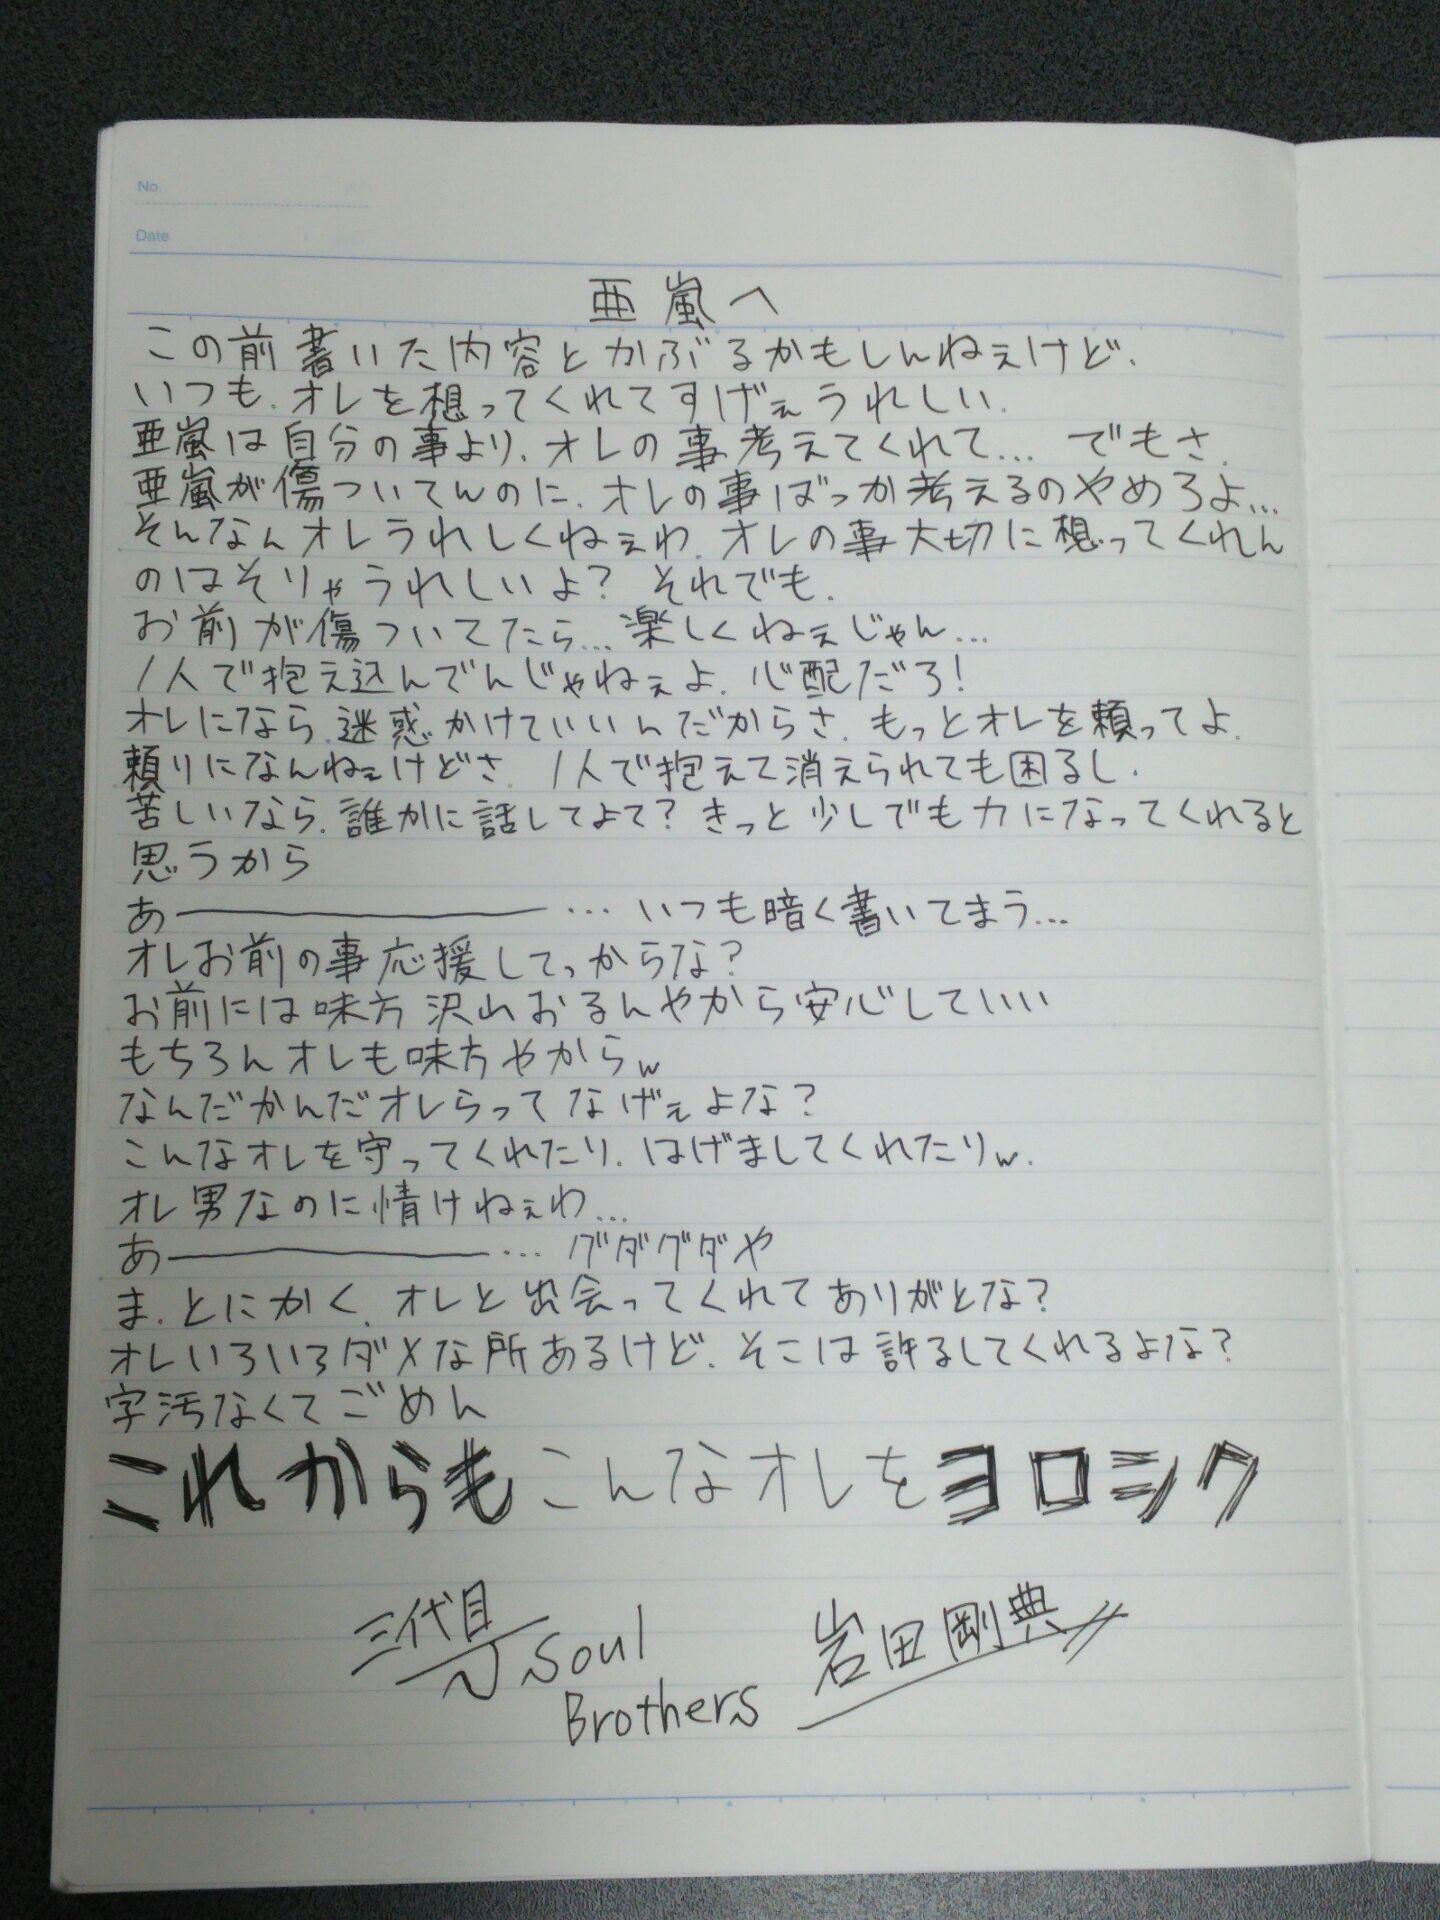 No.
Date
亜嵐へ
この前書いた内容とかぶるかもしんねぇけど、
いつも、オレを想ってくれてすげぇうれしい、
亜嵐は自分の事より、オレの事考えてくれて… でもさ、
亜嵐が傷ついてんのに、オレの事ばっか考えるのやめろよ…
そんなんオレうれしくねぇわ、オレの事大切に想ってくれん
のはそりゃうれしいよ？ それでも、
お前が傷ついてたら…楽しくねぇじゃん…
1人で抱え込んでんじゃねぇよ、心配だろ！
オレになら、迷惑かけていいんだからさ、もっとオレを頼ってよ、
頼りになんねぇけどさ、1人で抱えて消えられても困るし、
苦しいなら、誰かに話してよて？きっと少しでも力になってくれると
思うから
あ――――――…いつも暗く書いてまう…
オレお前の事応援してっからな？
お前には味方沢山おるんやから安心していい
もちろんオレも味方やからw
なんだかんだオレらってなげぇよな？
こんなオレを守ってくれたり、はげましてくれたりw、
オレ男なのに情けねぇわ…
あ――――――…グダグダや
ま、とにかく、オレと出会ってくれてありがとな？
オレいろいろダメな所あるけど、そこは許るしてくれるよな？
字汚なくてごめん
これからもこんなオレをヨロシク
三代目 J Soul
Brothers 岩田剛典